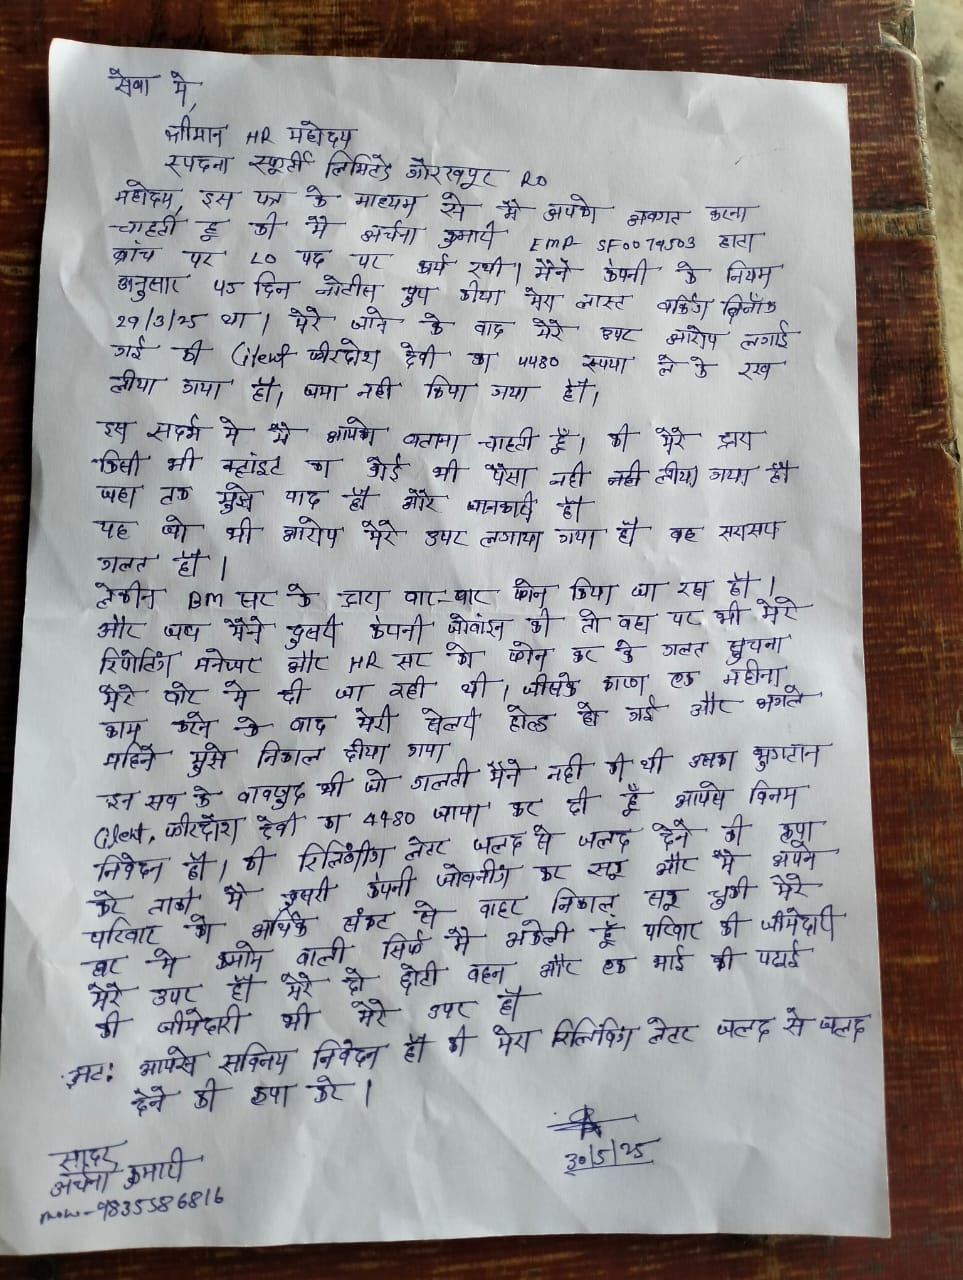 सेवा मे,
श्रीमान HR महोदय
स्पंदना स्फूर्ती लिमिटेड गोरखपुर RO
महोदय, इस पत्र के माध्यम से मै आपको अवगत करना
चाहती हू की मै अर्चना कुमारी EMP SF0079503 हाटा
ब्रांच पर LO पद पर कार्य रथी। मैने कंपनी के नियम
अनुसार 45 दिन नोटीस पुरा कीया मेरा लास्ट वर्किंग दिनाँक
29/3/25 था। मेरे जाने के बाद मेरे उपर आरोप लगाई
गई की Client फीरदोश देवी का 4480 रुपया ले के रख
लीया गया हैं, जमा नही किया गया हैं।
इस संदर्भ मे मै आपको बताना चाहती हूँ। की मेरे द्वारा
किसी भी क्लांइट का कोई भी पैसा नही नही लीया गया हैं
जहा तक मुझे याद हैं और जानकारी हैं
यह जो भी आरोप मेरे उपर लगाया गया हैं वह सरासर
गलत हैं।
लेकीन BM सर के द्वारा बार-बार फोन किया जा रहा हैं।
और जब मैने दुसरी कंपनी जोवाइन की तो वहा पर भी मेरे
रिपोटिंग मनेजर और HR सर को फोन कर के गलत सुचना
मेरे बारे मे दी जा रही थी। जीसके कारण एक महीना
काम करने के बाद मेरी सेलरी होल्ड हो गई और अगले
महिने मुझे निकाल दीया गया
इन सब के बावजुद भी जो गलती मैने नही की थी उसका भुगतान
Client, फीरदोश देवी का 4480 जमा कर दी हूँ आपसे विनम्र
निवेदन हैं। की रिलिविंग लेटर जलद से जलद देने की कृपा
करे ताकी मै दुसरी कंपनी जोवनींग कर सकू और मै अपने
परिवार को आर्थिक संकट से बाहर निकाल सकू चुकी मेरे
घर मे कमाने वाली सिर्फ मै अकेली हूँ परिवार की जीमेदारी
मेरे उपर हैं मेरे दो छोटी बहन और एक भाई की पढाई
की जीमेदारी भी मेरे उपर हैं
अतः आपसे सविनय निवेदन हैं की मेरा रिलिविंग लेटर जलद से जलद
देने की कृपा करे।
30/5/25
सादर
अर्चना कुमारी
mow-9835586816